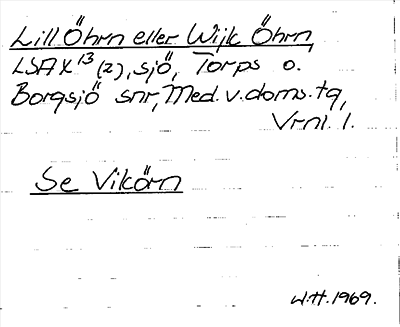 Lill Öhrn eller Wijk Öhrn,
LSA X 13 (2), sjö, Torps o.
Borgsjö snr, Med. v. doms. tg,
Vrnl. l.
Se Vikörn
W.H. 1969.